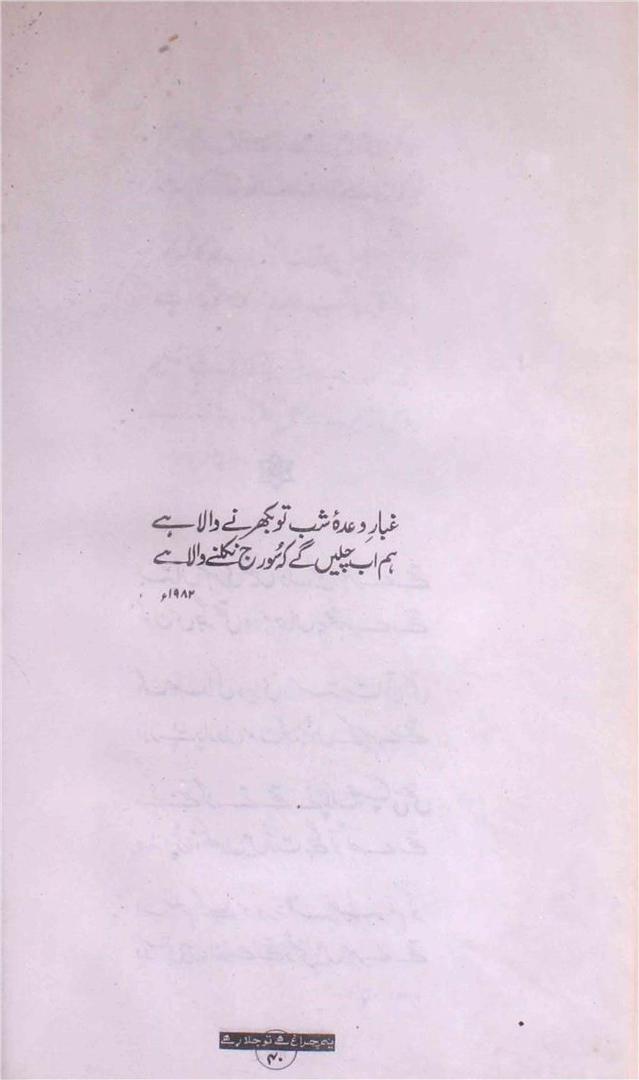 غبارِ وعدۂ شب تو بکھرنے والا ہے
ہم اب چلیں گے کہ سُورج نکلنے والا ہے
۱۹۸۲ء
یہ چراغ ہے تو جلا رہے
۴۰